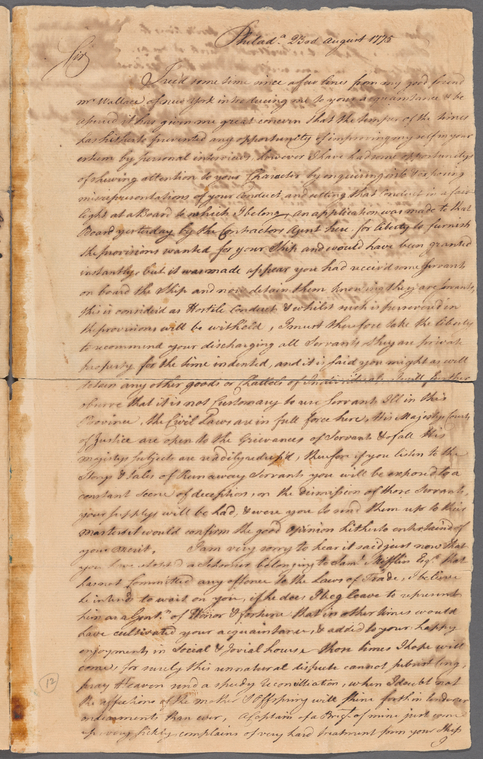 Philada. 23rd August 1775
Sir
I recd some time since a few lines from my good friend
Mr Wallace of New York introducing me to your acquaintance & be
assured it has given me great concern that the temper of the times
has hitherto prevented any opportunity of improving myself in your
esteem by personal interviews, however I have had some opportunitys
of shewing attention to your Character by enquiring into & removing
misrepresentations of your Conduct, and setting that Conduct in a fair
light at a Board to which I belong, an application was made to that
Board yesterday by the Contractors Agent here for liberty to furnish
the provisions wanted for your Ship and would have been granted
instantly, but it was made appear you had received some Servants
on board the Ship and now detain them knowing they are Servants,
this is considered as Hostile Conduct & whilst such is persevered in
the provisions will be withheld, I must therefore take the liberty
to recommend your discharging all Servants, they are private
property for the time indented, and it is said you might as well
retain any other goods or Chattles of
observe that it is not Customary to use Servants Ill in this
Province, the Civil Laws are in full force here, His Majestys Courts
of Justice are open to the Grievances of Servants & of all His
majestys subjects are readily redress'd, therefore if you listen to the
Storys & Tales of Runaway Servants you will be exposed to a
constant Scene of deception, on the dismission of those Servants,
your supplys will be had, & were you to send them up to their
masters it would confirm the good opinion hitherto entertained of
your merit, I am very sorry to hear it said just now that
you have a Schooner belonging to Saml. Mifflin Esqr. that
has not committed any offence to the Laws of Trade, I believe
he intends to wait on you, if he does I beg leave to represent
him as a Gentn. of Honor & fortune that in other times would
have cultivated your acquaintance, & added to your happy
enjoyments in Social & Jovial hours those times I hope will
come for surely this unnatural dispute cannot subsist long,
pray Heaven send a speedy reconciliation, when I doubt not
the affections of the mother & Offspring will shine forth in
than ever, A Captain of a Brigt. of mine just
up very sickly complains of very hard treatment from your Ship
12